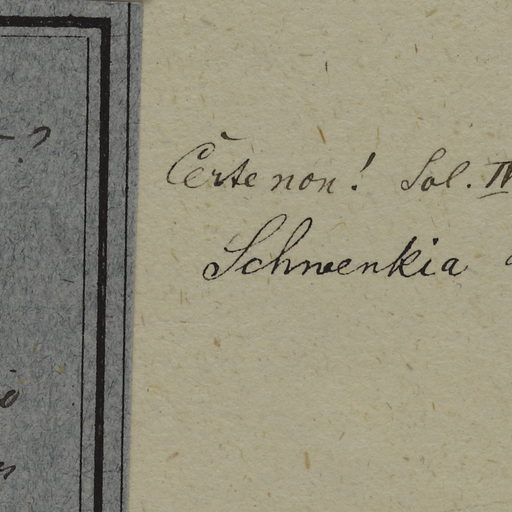 ?
Certe non! Sol. IV
Schwenkia